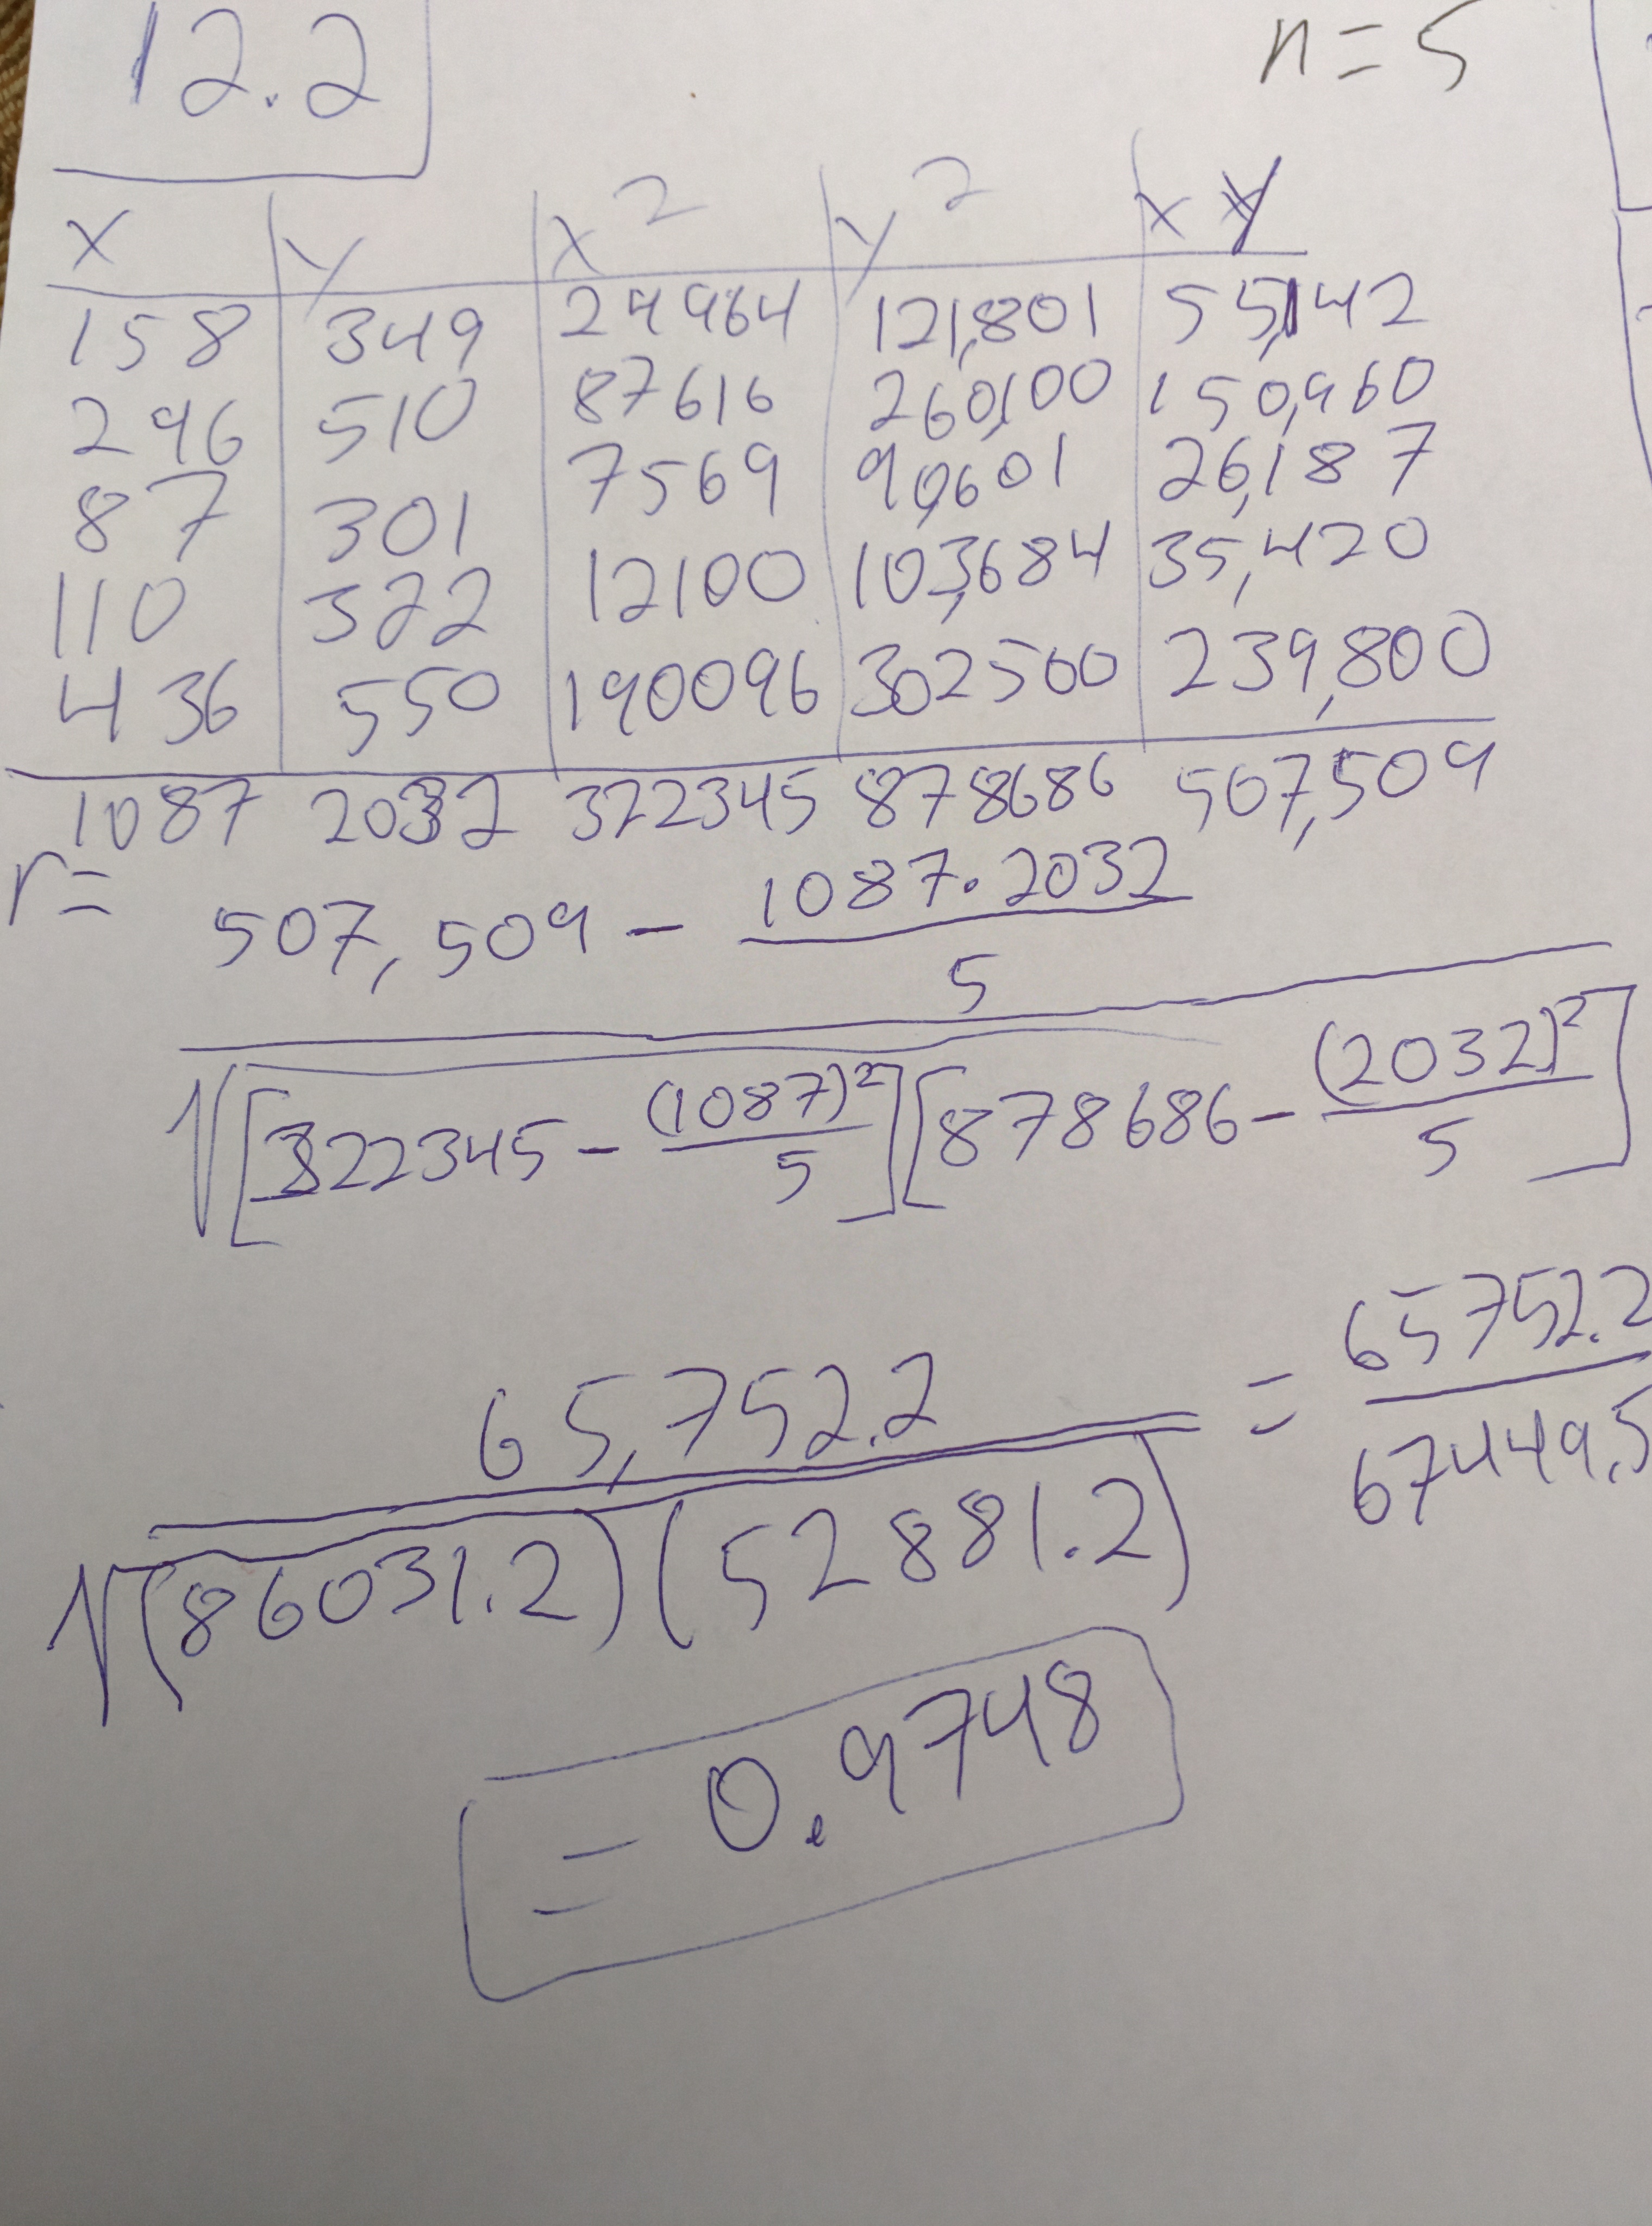 12.2 n=5
x y x² y² xy
158 349 24964 121,801 55,142
296 510 87616 260,100 150,960
87 301 7569 90,601 26,187
110 322 12100 103,684 35,420
436 550 190096 302500 239,800
1087 2032 322345 878686 507,509
r= 507,509 - 1087·2032
5
√[322345 - (1087)²/5][878686 - (2032)²/5]
65,752.2 = 65752.2
√(86031.2)(52881.2) 67449.5
= 0.9748